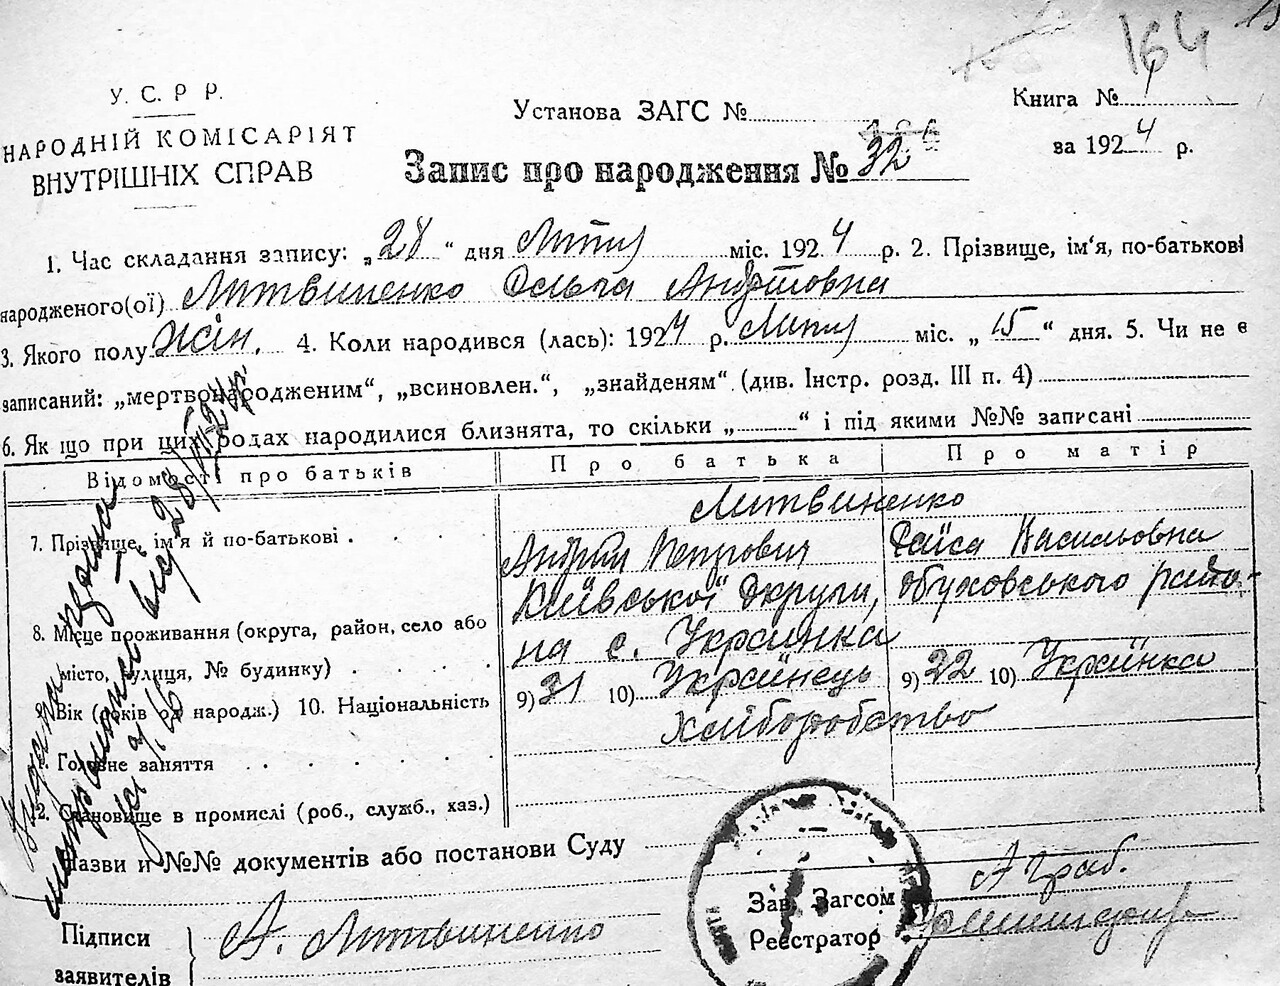 164
У. С. Р. Р.
НАРОДНІЙ КОМІСАРІЯТ
ВНУТРІШНІХ СПРАВ
Установа ЗАГС №
Книга № 1
за 1924 р.
Запис про народження № 32
1. Час складання запису: „28“ дня Лютня міс. 1924 р. 2. Прізвище, ім'я, по-батькові
народженого(ої) Литвиненко Ольга Андріївна
3. Якого полу жін. 4. Коли народився (лась): 1924 р. Лютня міс. „15“ дня. 5. Чи не є
записаний: „мертвонародженим“, „всиновлен.“, „знайденям“ (див. Інстр. розд. III п. 4)
6. Як що при цих родах народилися близнята, то скільки „ “ і під якими №№ записані
Відомості про батьків Про батька Про матір
Литвиненко
7. Прізвище, ім'я й по-батькові
Андрій Петрович Раїса Васильовна
Київської Округи, Обуховського райо-
8. Місце проживання (округа, район, село або
на с. Українка
місто, вулиця, № будинку)
9) 31 10) Українець 9) 22 10) Українка
Вік (років од народж.) 10. Національність
Хліборобство
Головне заняття
12. Становище в промислі (роб., служб., хаз.)
Назви и №№ документів або постанови Суду
Зав. Загсом
Реєстратор
Підписи
заявителів
А. Литвиненко